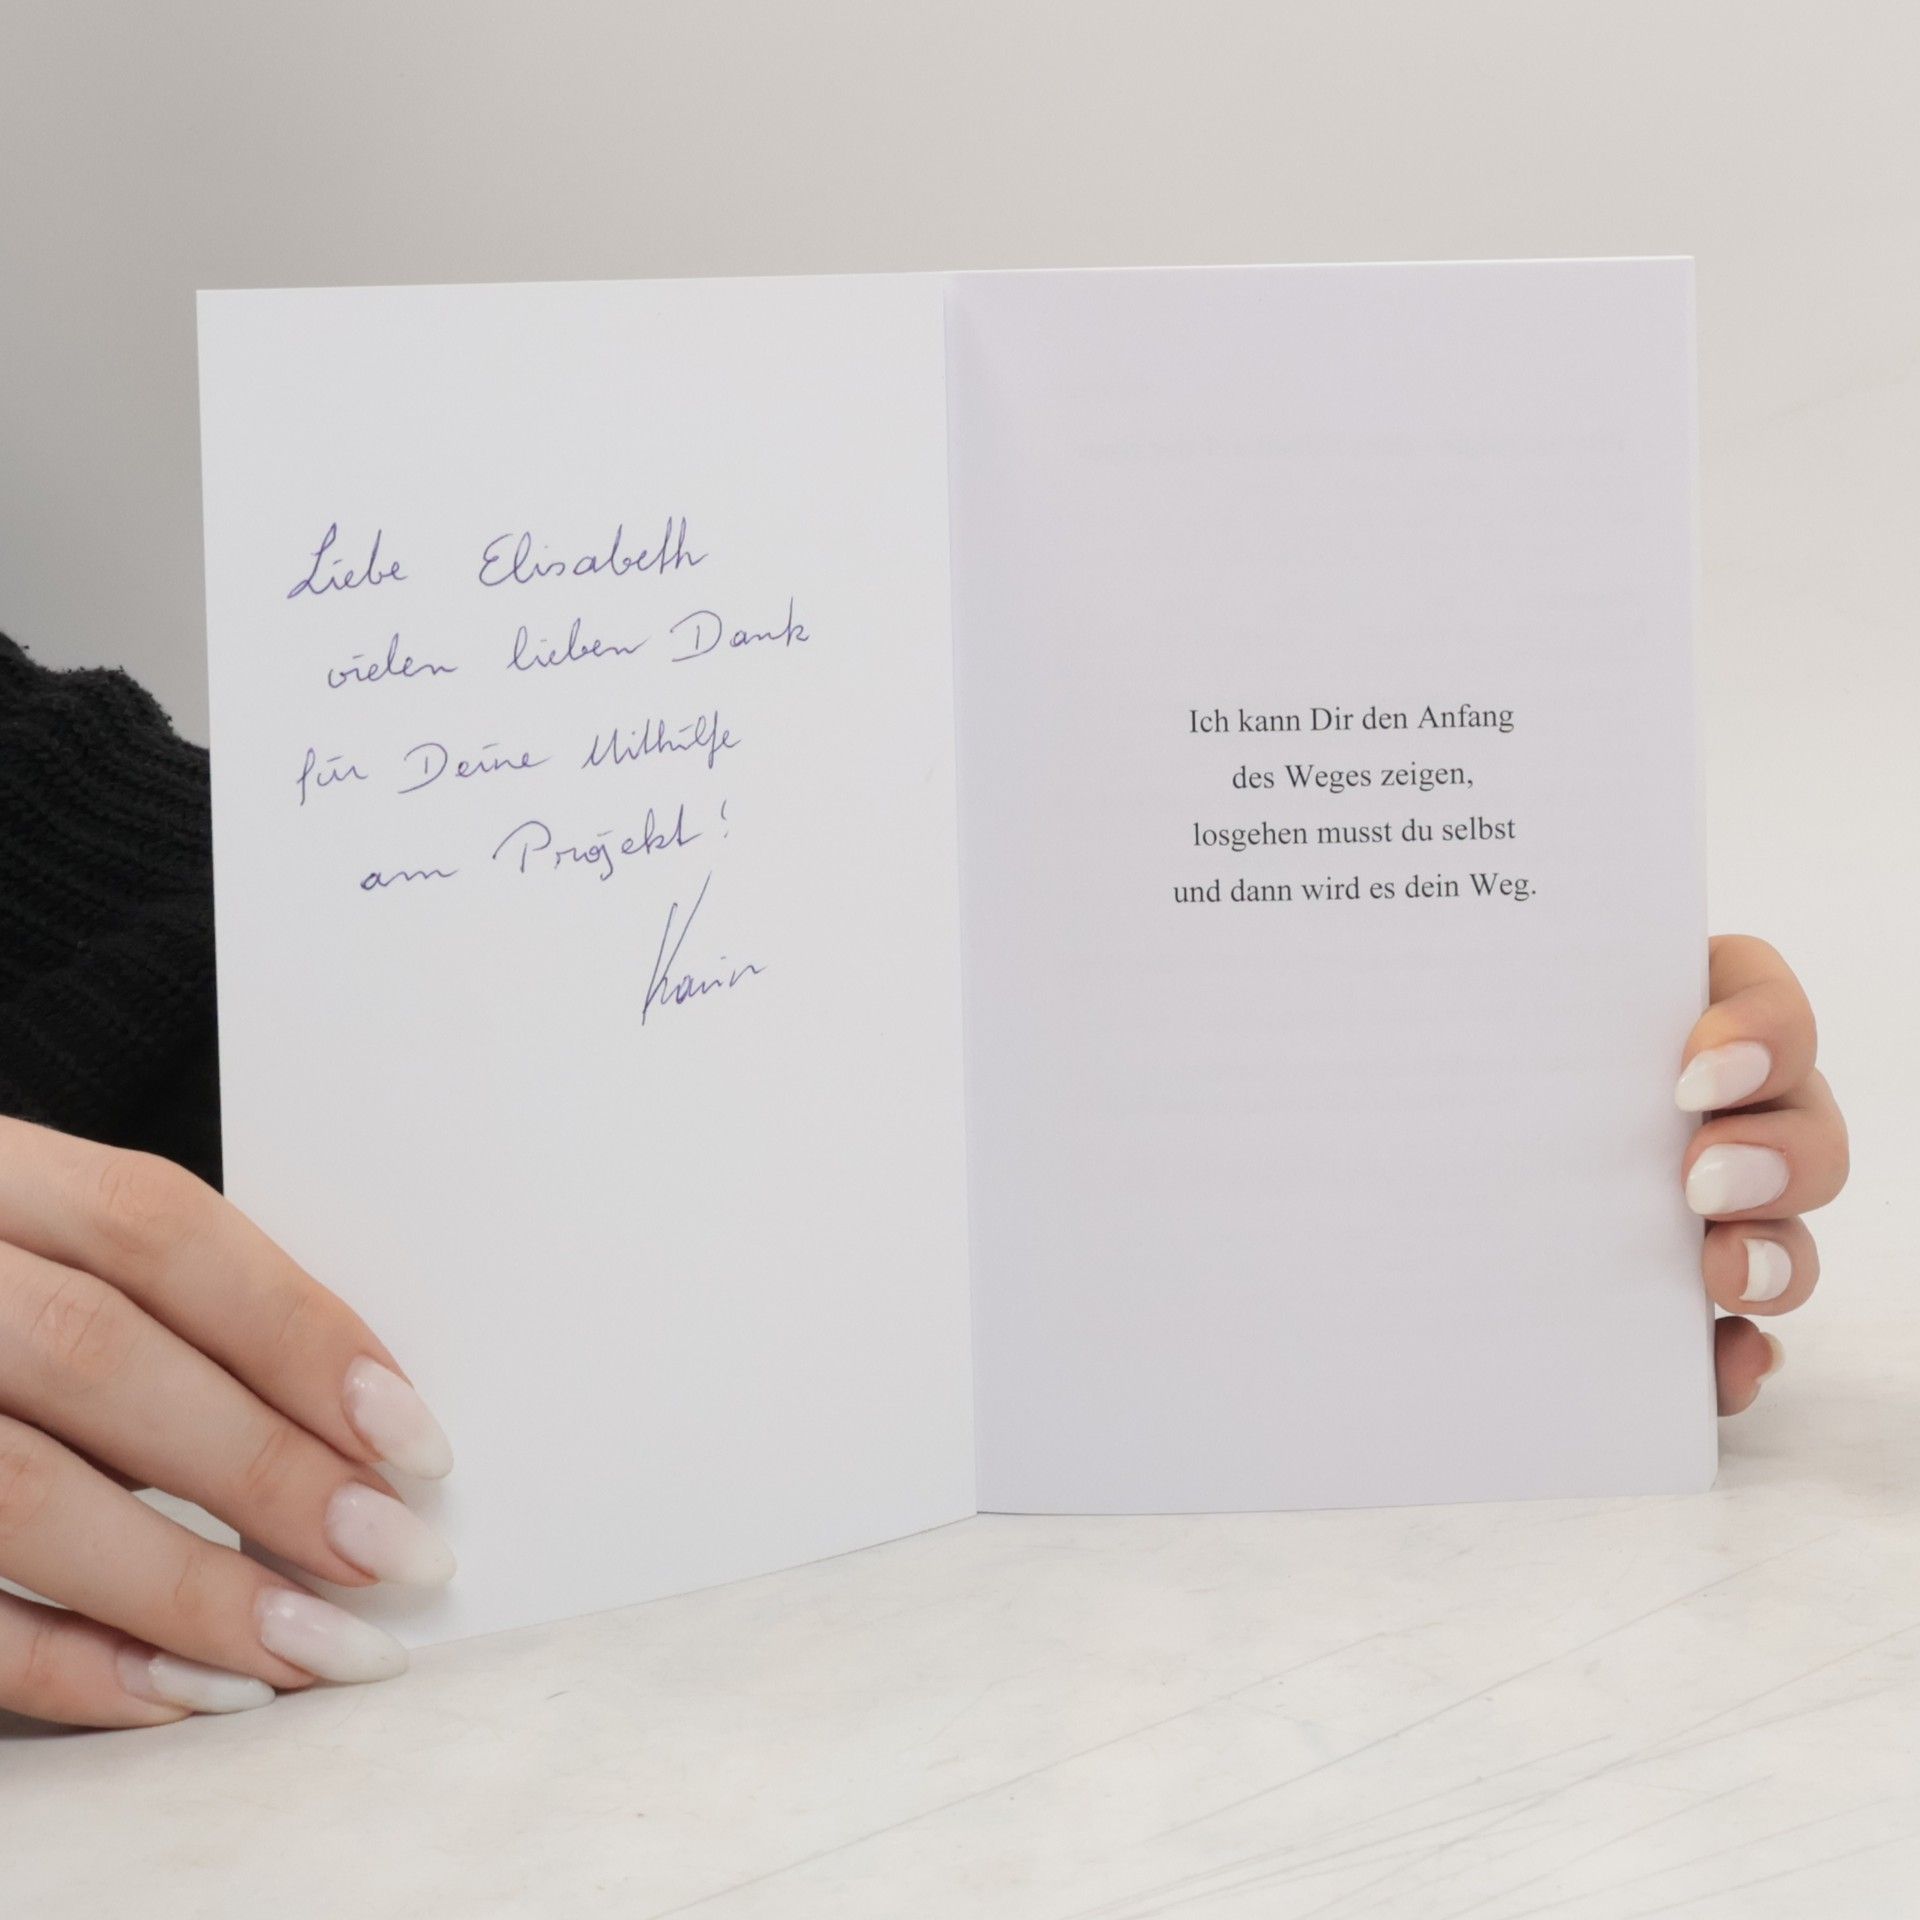 Liebe Elisabeth
vielen lieben Dank
für Deine Mithilfe
am Projekt!
Karin
Ich kann Dir den Anfang
des Weges zeigen,
losgehen musst du selbst
und dann wird es dein Weg.